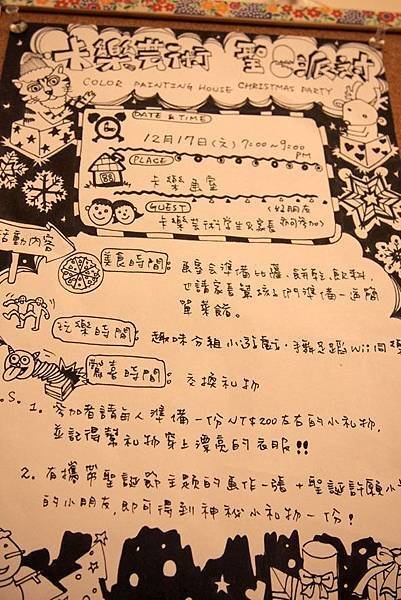 卡樂芸術 聖 派對
COLOR PAINTING HOUSE CHRISTMAS PARTY
DATE & TIME
12月17日(六) 7:00~9:00 PM
PLACE
卡樂畫室
GUEST (好朋友
卡樂芸術學生及家長 亦可參加)
活動內容
美食時間: 畫室會準備比薩、餅乾、飲料,
也請家長幫孩子們準備一道簡
單菜餚。
玩樂時間: 趣味分組小遊戲、手舞足蹈Wii同樂
驚喜時間: 交換礼物
.S. 1. 參加者請每人準備一份NT$200左右的小礼物,
並記得幫礼物穿上漂亮的衣服!!
2. 有攜帶聖誕節主題的畫作一張 + 聖誕許願小
的小朋友,即可得到神秘小礼物一份!